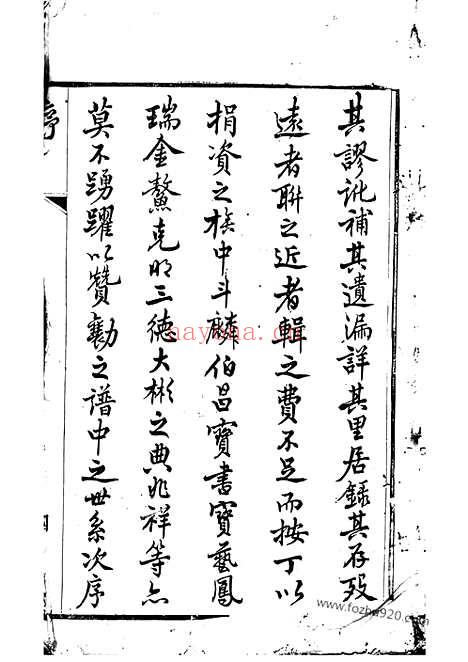 其謬訛補其遺漏詳其里居錄其存歿
遠者聯之近者輯之費不足而按丁以
捐資之族中斗麟伯昌寶書寶藝鳳
瑞金鰲克明三德大彬之典兆祥等亦
莫不踴躍以贊勷之譜中之世系次序
序
四
nayona.cn
www.fozhu920.com